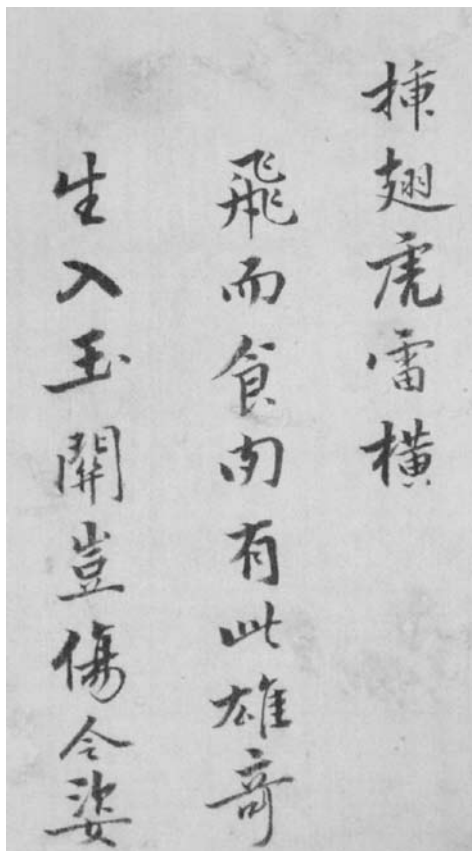 挿翅虎雷橫
飛而食肉有此雄奇
生入玉關豈傷令姿